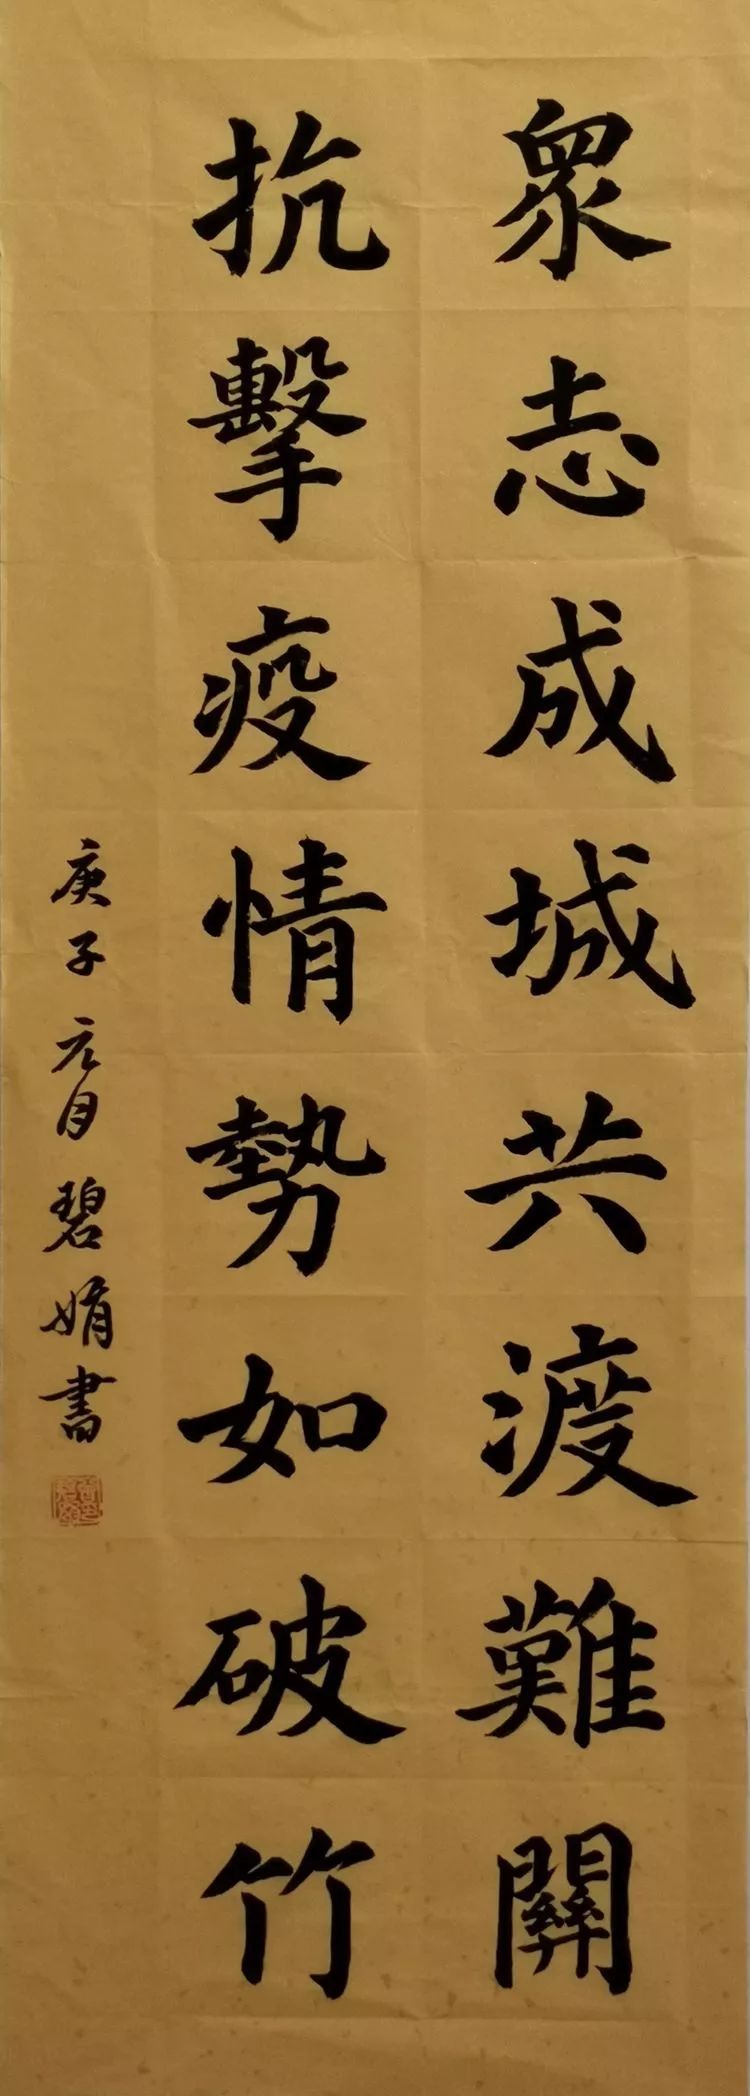 衆志成城共渡難關
抗擊疫情勢如破竹
庚子元月碧娟書